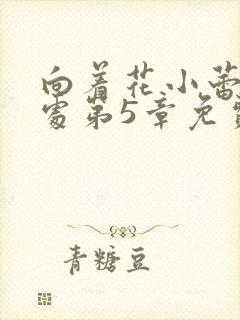 向着花小蕾
处第5章免费
青糖豆